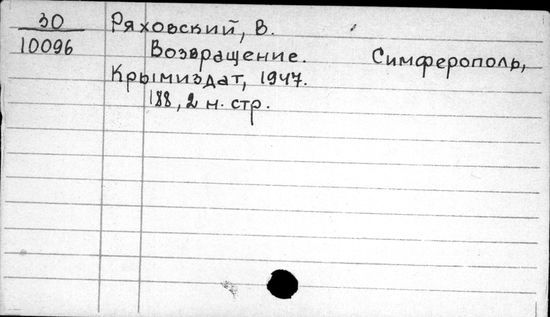 30 Ряховский, В.
10096 Возвращение. Симферополь,
Крымиздат, 1947.
188, 2 н. стр.